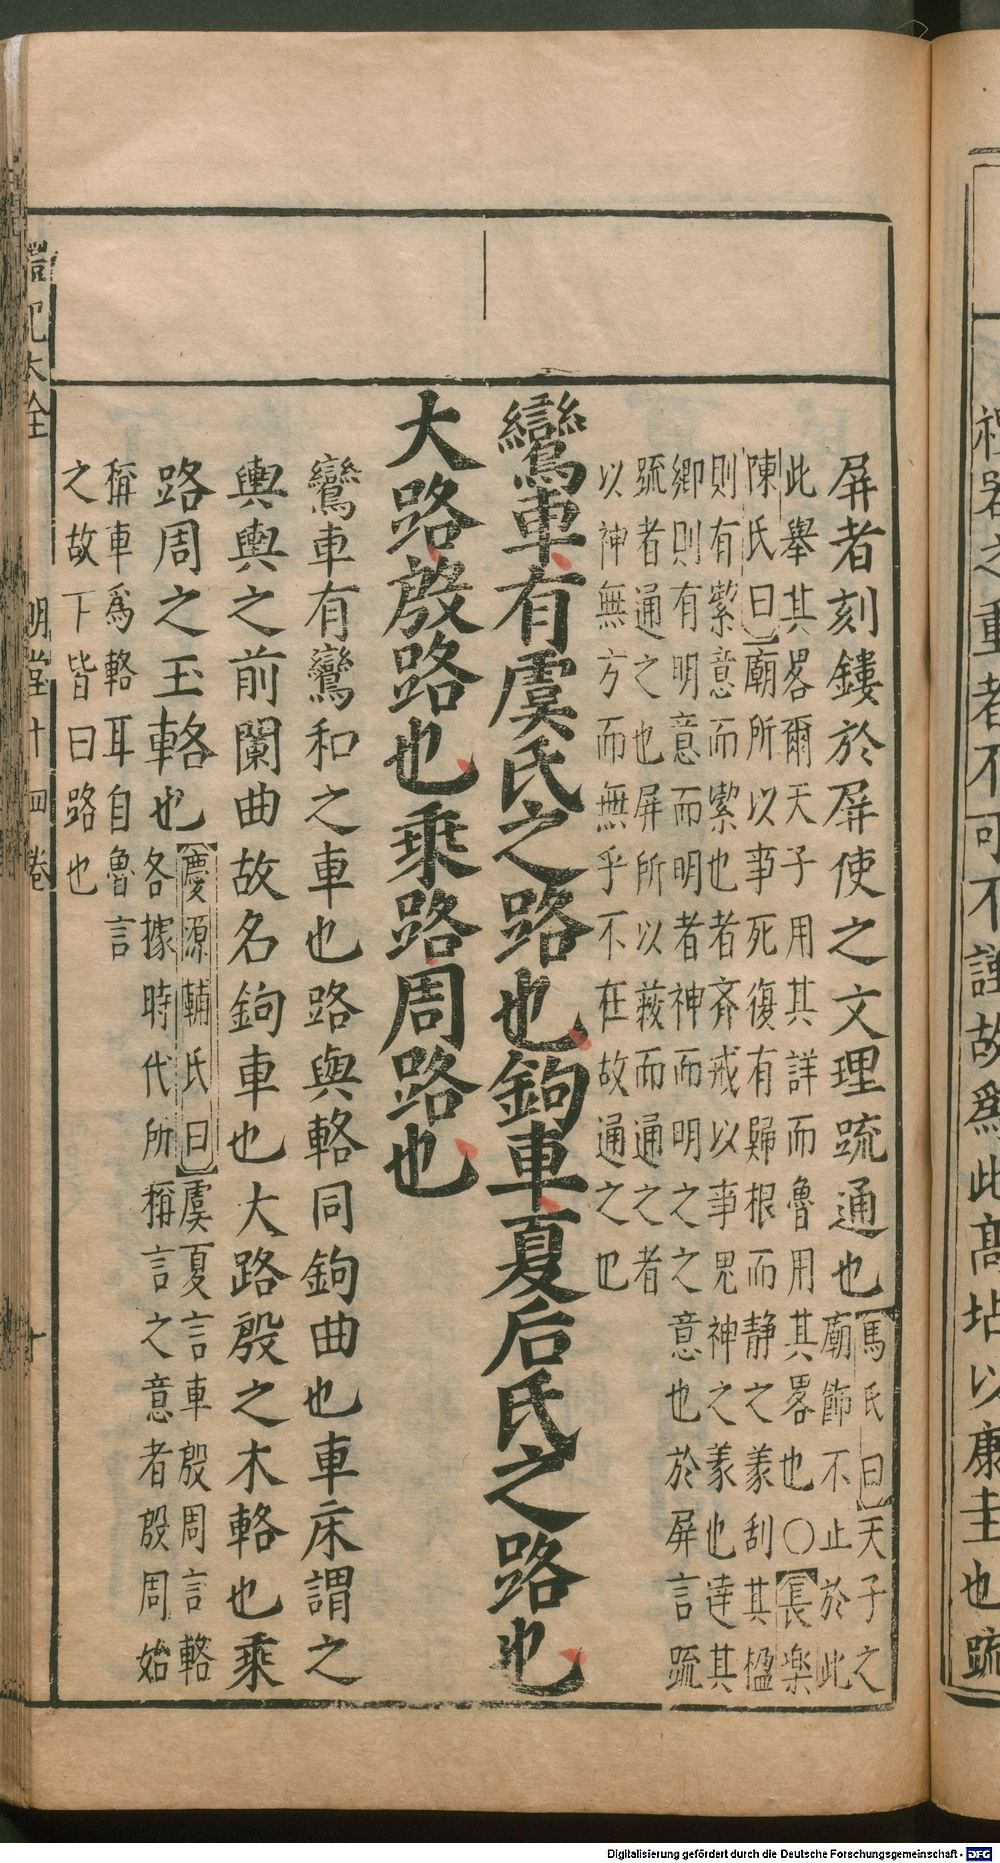 禮器之重者不可不謹故爲此高坫以康圭也疏
屏者刻鏤於屏使之文理疏通也馬氏曰天子之
廟飾不止於此
此舉其畧爾天子用其詳而魯用其畧也○長樂
陳氏曰廟所以事死復有歸根而静之義刮其楹
則有絜意而絜也者齊戒以事鬼神之義也達其
鄉則有明意而明者神而明之之意也於屏言疏
疏者通之也屏所以蔽而通之者
以神無方而無乎不在故通之也
鸞車有虞氏之路也鉤車夏后氏之路也
大路殷路也乘路周路也
鸞車有鸞和之車也路與輅同鉤曲也車床謂之
輿輿之前闌曲故名鉤車也大路殷之木輅也乘
路周之玉輅也慶源輔氏曰虞夏言車殷周言輅
各據時代所稱言之意者殷周始
稱車爲輅耳自魯言
之故下皆曰路也
禮記大全 明堂十四卷 十
Digitalisierung gefördert durch die Deutsche Forschungsgemeinschaft - DFG